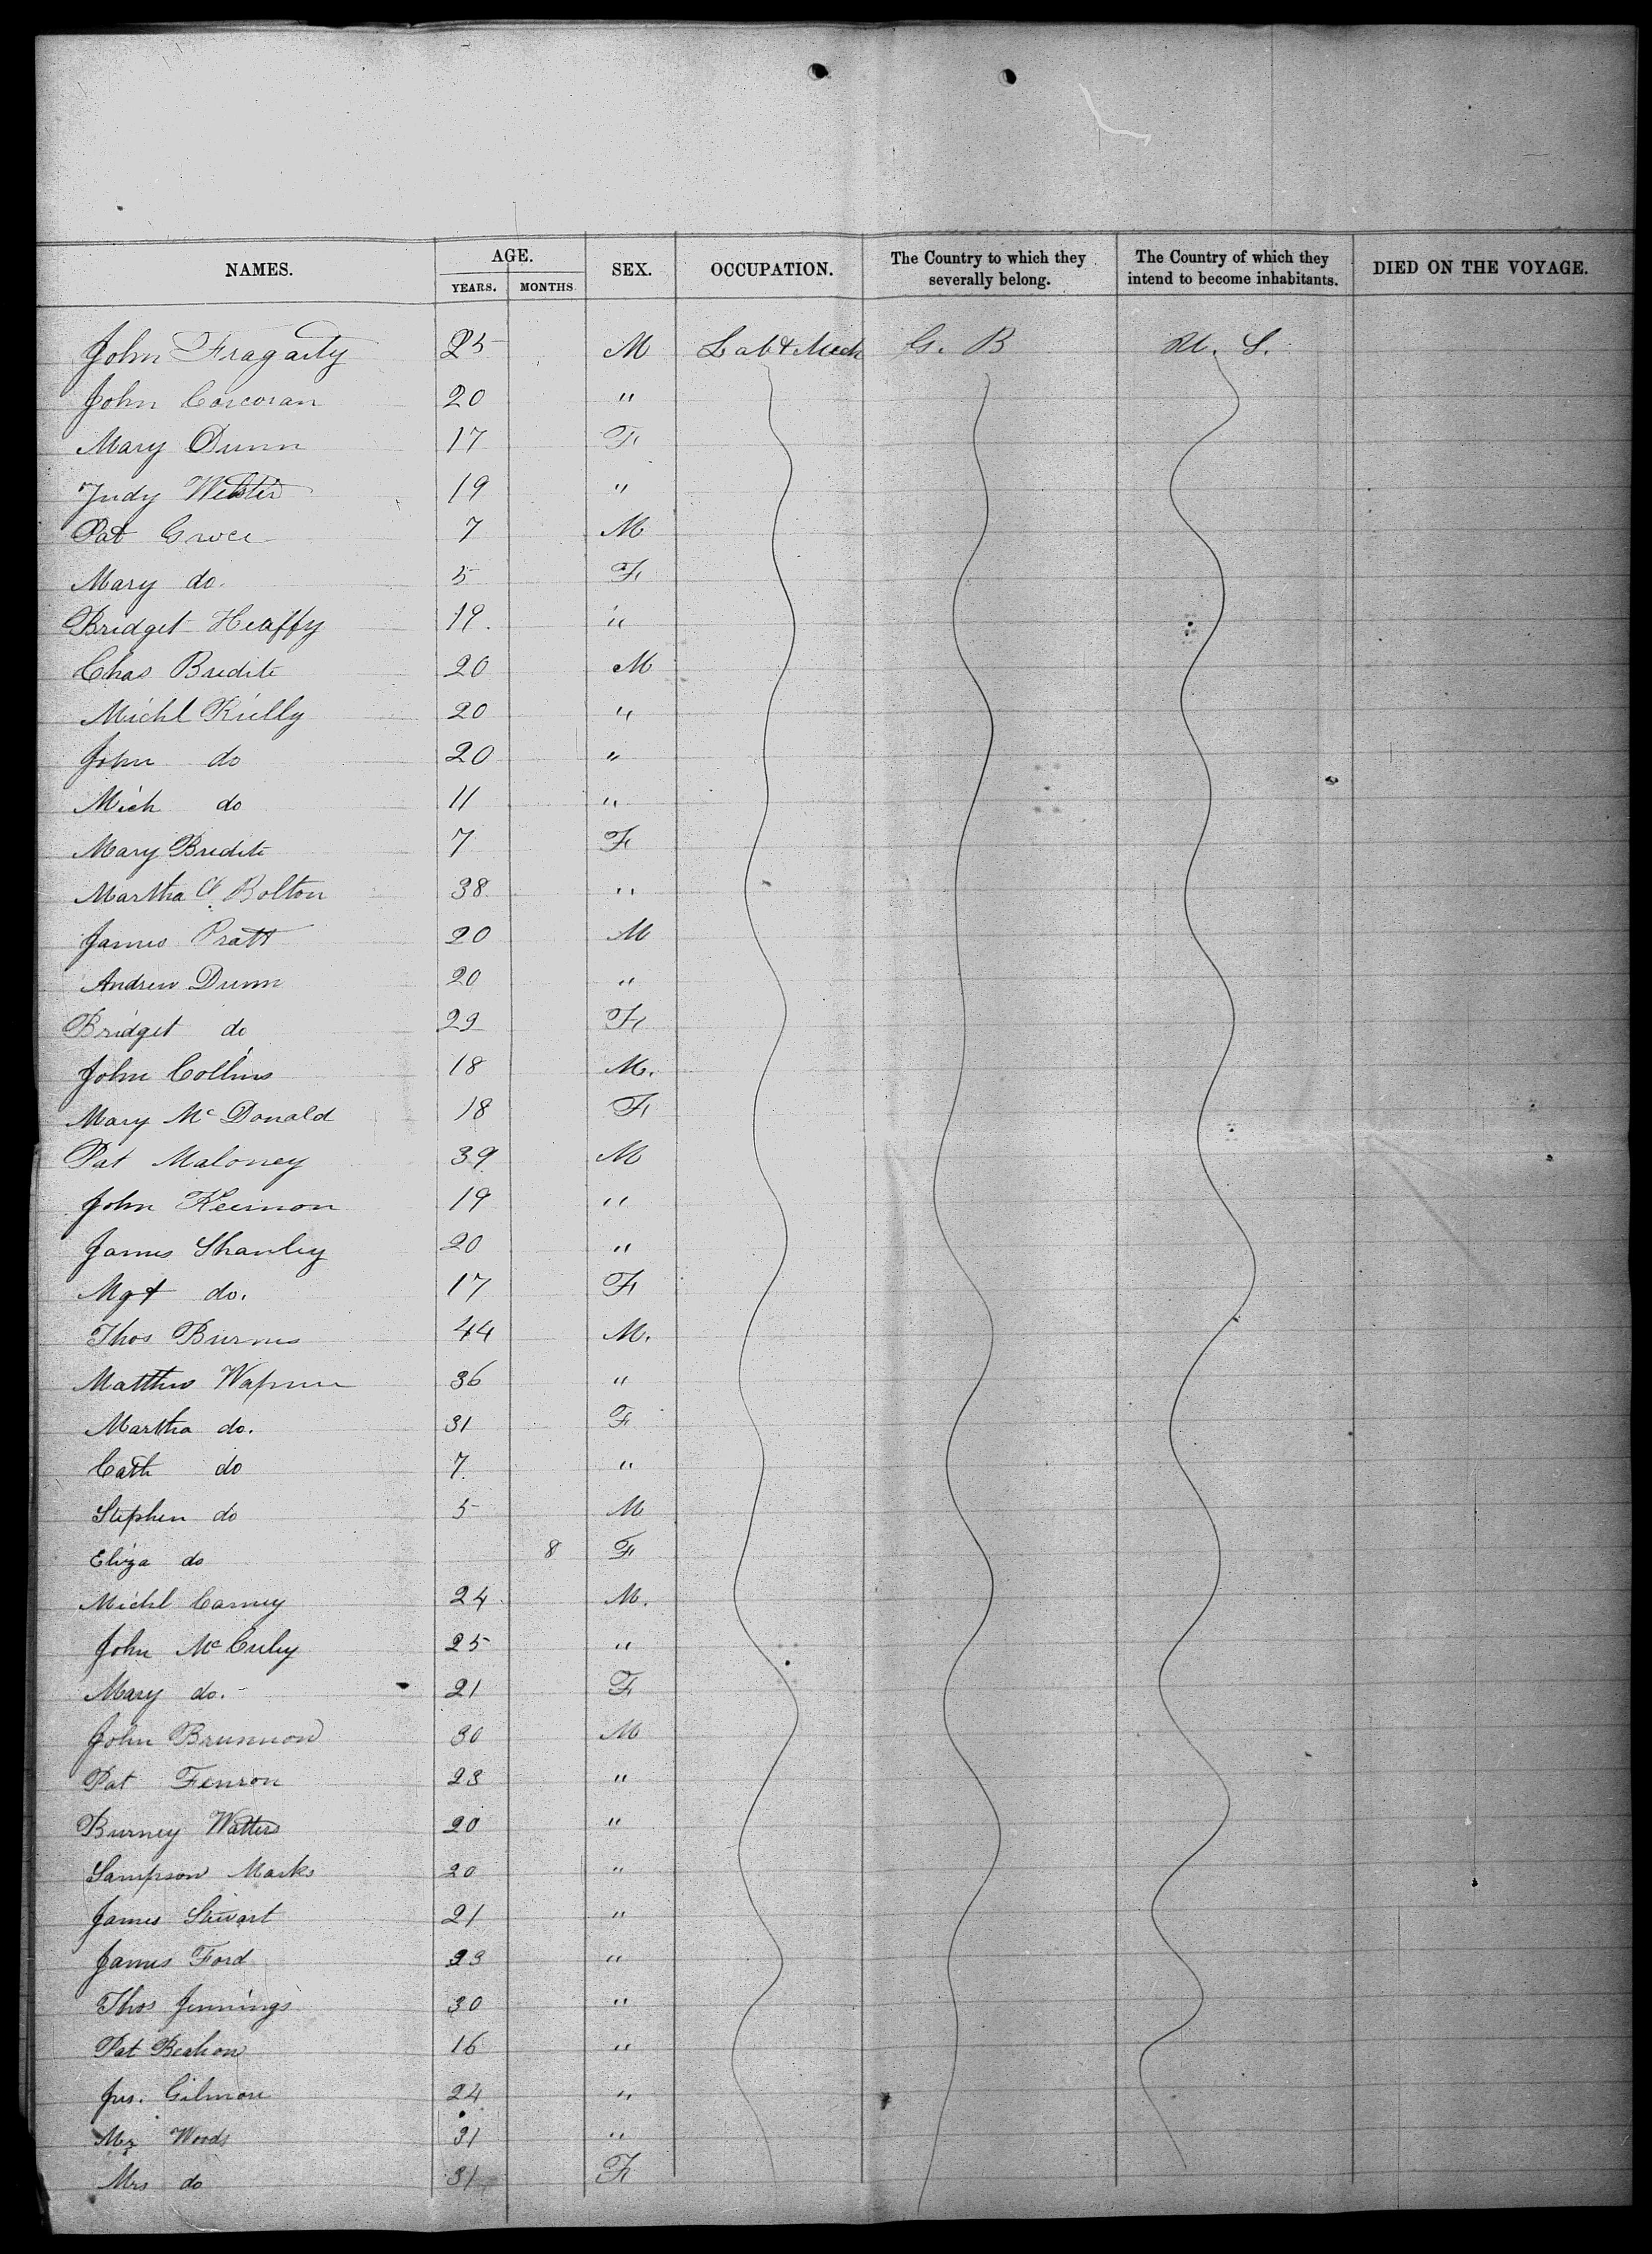 NAMES. AGE. SEX. OCCUPATION. The Country to which they severally belong. The Country of which they intend to become inhabitants. DIED ON THE VOYAGE.
YEARS. MONTHS
John Fragarty 25 M Lab & Mech G. B U. S.
John Corcoran 20 "
Mary Dunn 17 F
Judy Webster 19 "
Pat Grace 7 M
Mary do. 5 F
Bridget Heaffy 19. "
Chas Bredite 20 M
Michl Kielly 20 "
John do 20 "
Mich do 11 "
Mary Bredite 7 F
Martha A. Bolton 38 "
James Pratt 20 M
Andrew Dunn 20 "
Bridget do 29 F
John Collins 18 M.
Mary Mc Donald 18 F
Pat Maloney 39 M
John Keernon 19 "
James Shanley 20 "
Mgt do. 17 F
Thos Burnes 44 M.
Matthew 36 "
Martha do. 31 F
Cath do 7 "
Stephen do 5 M
Eliza do 8 F
Michl Carney 24 M.
John Mc Curley 25 "
Mary do. 21 F
John Brunnon 30 M
Pat Fenron 23 "
Burney Watters 20 "
Sampson Marks 20 "
James Stewart 21 "
James Ford 23 "
Thos Jennings 30 "
Pat Beahon 16 "
Jas. Gilmore 24 "
Mr Woods 31 "
Mrs do 31 F